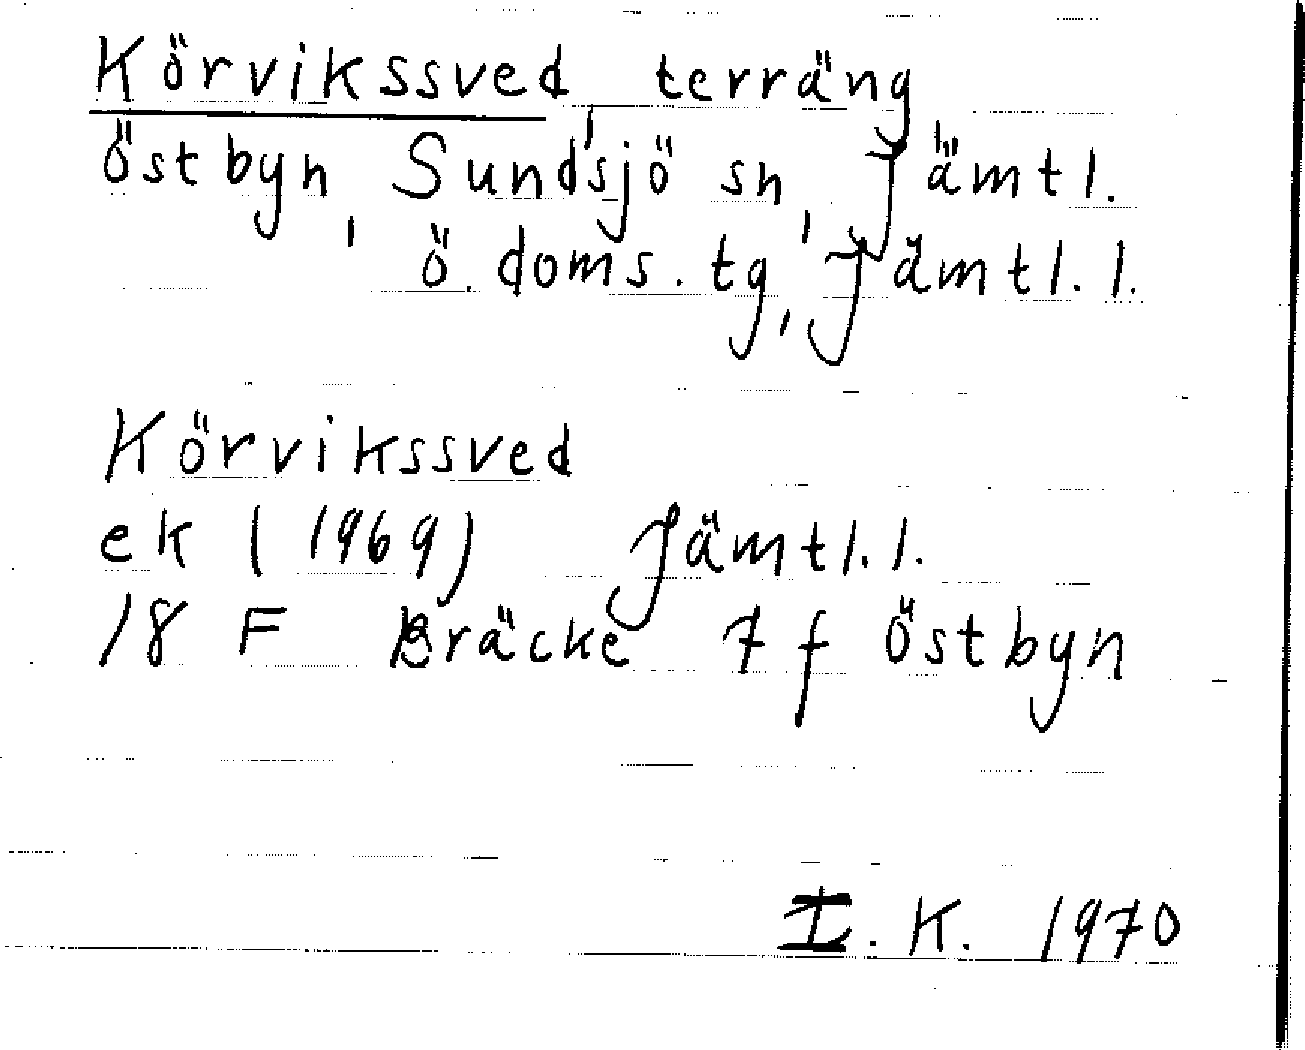 Körvikssved, terräng
Östbyn, Sundsjö sn, Jämtl.
ö. doms. tg, Jämtl. l.
Körvikssved
ek (1969) Jämtl. l.
18 F Bräcke 7 f Östbyn
I. K. 1970